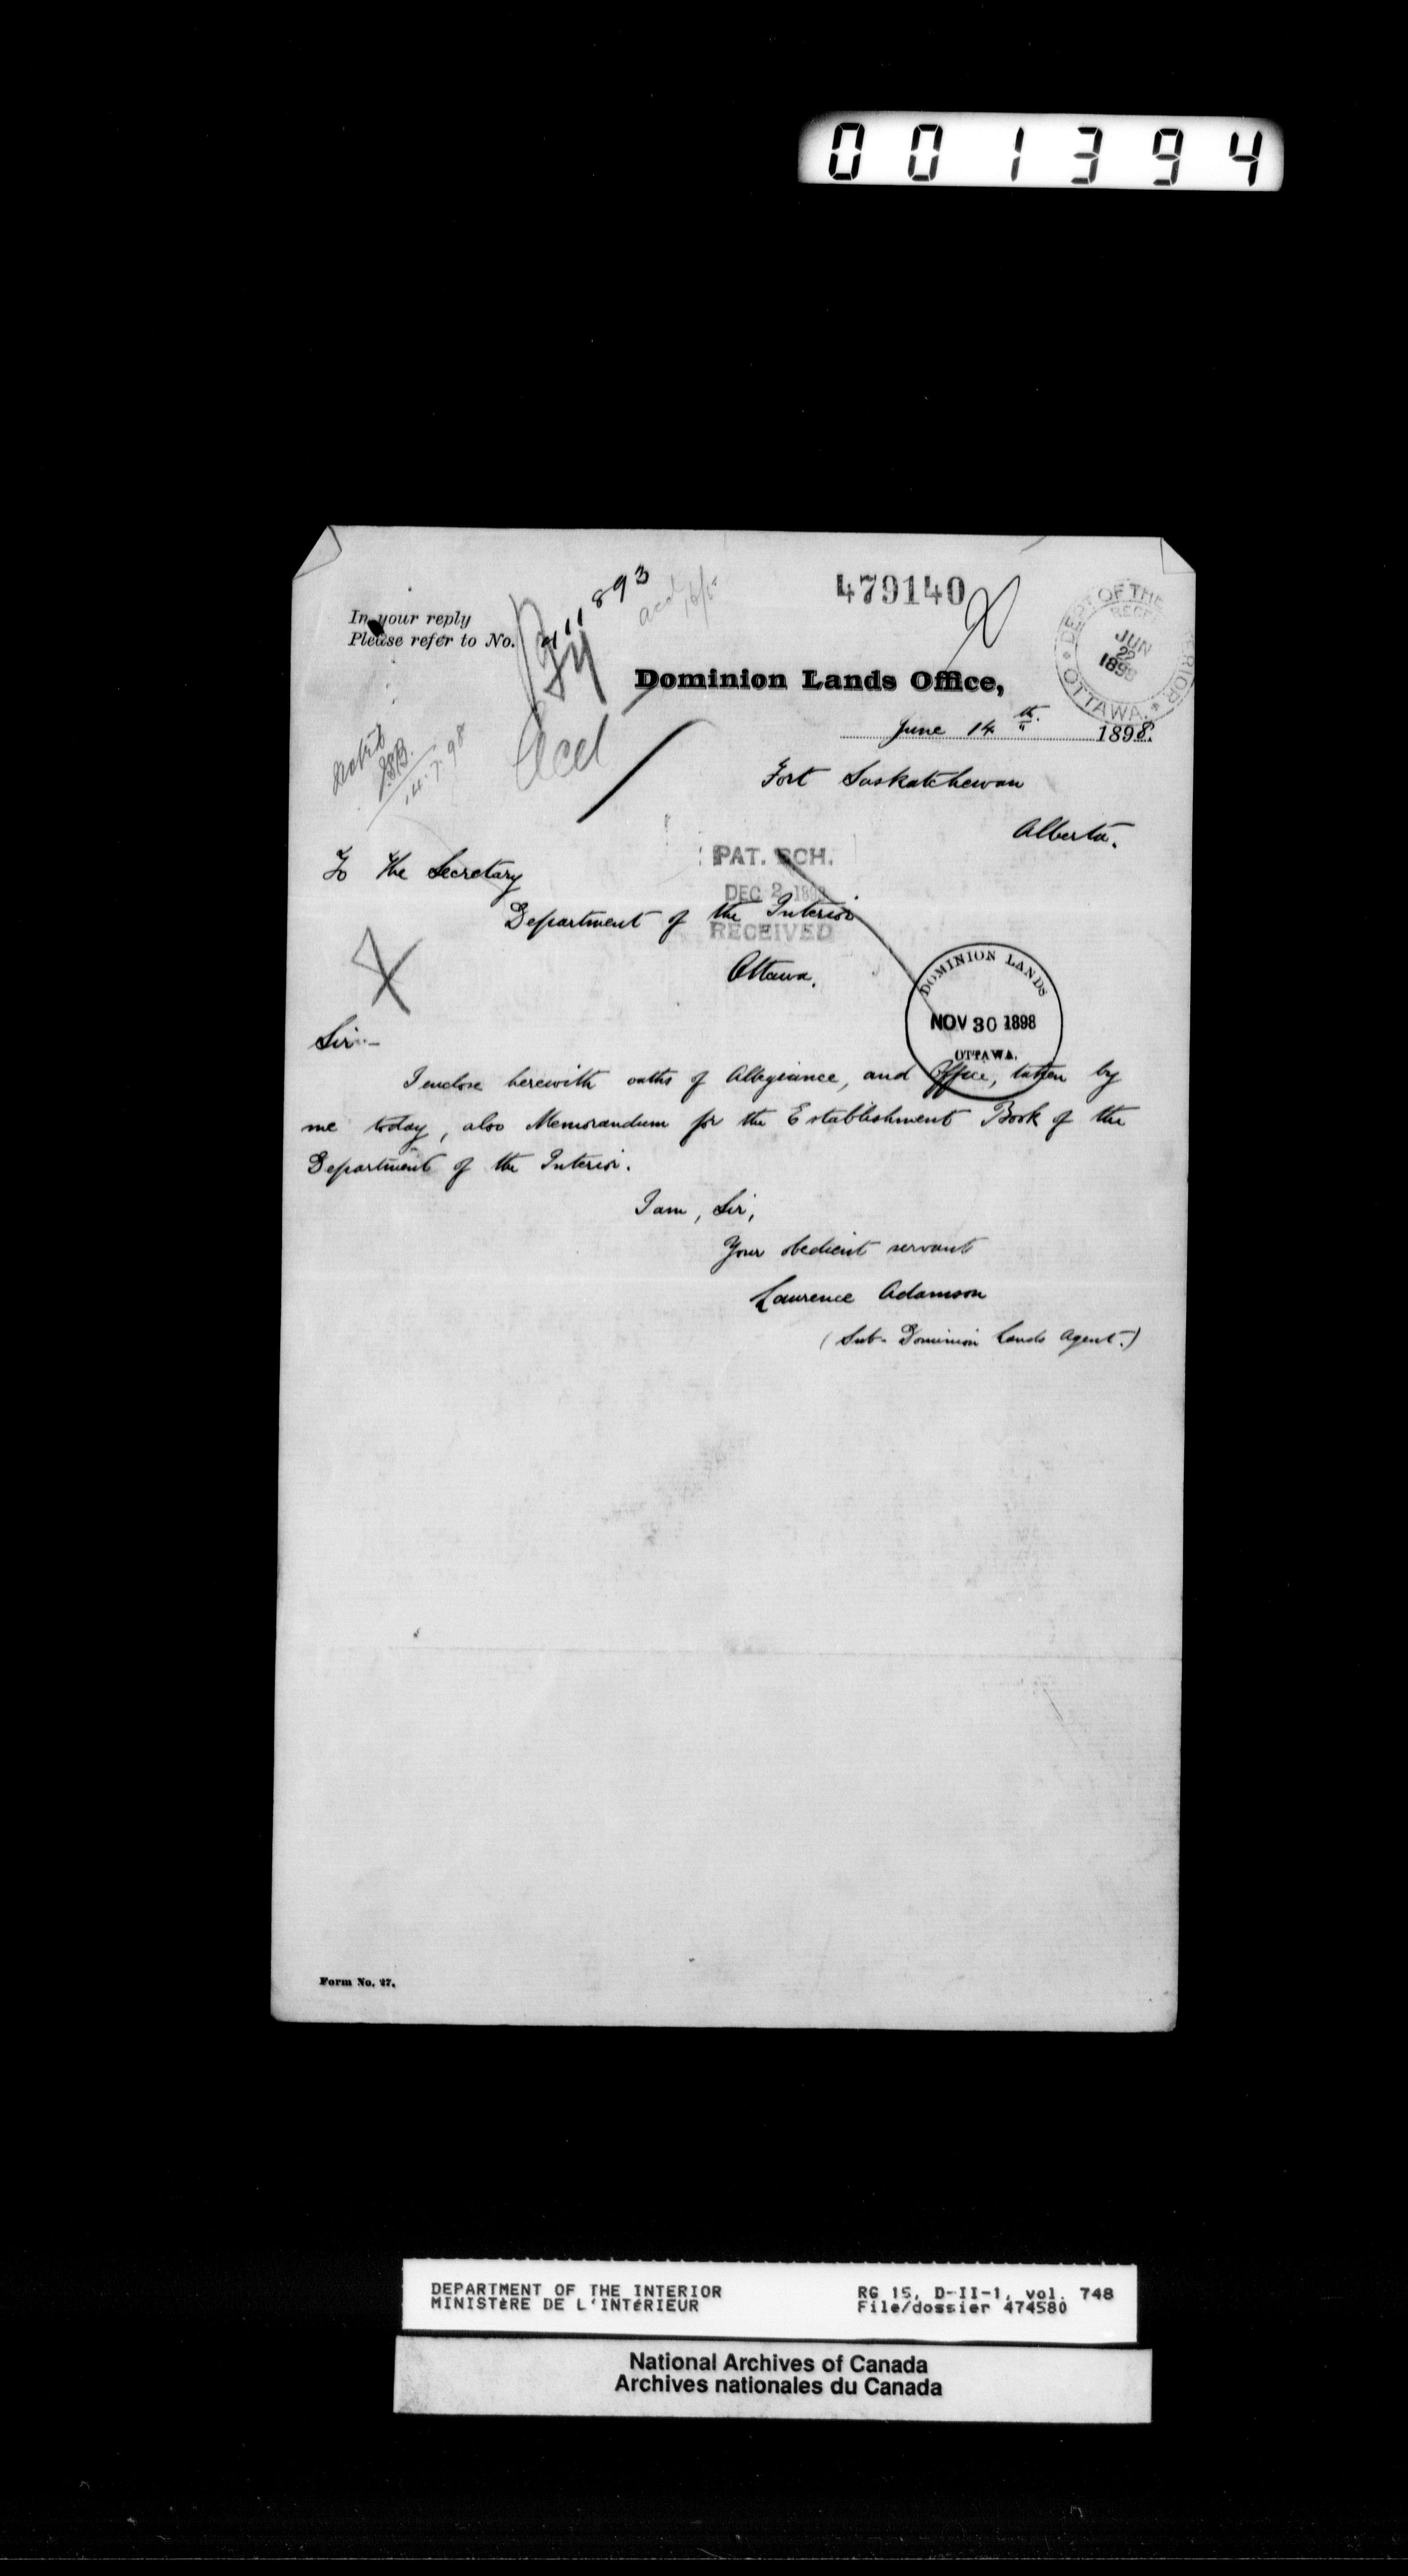 001394
479140
In your reply
Please refer to No.
DEPT OF THE INTERIOR
JUN
22
1898
OTTAWA.
Dominion Lands Office,
June 14th. 1898.
Fort Saskatchewan
Alberta.
Acd
14.7.98
PAT. SCH.
DEC 2 1898
RECEIVED
To the Secretary
Department of the Interior
Ottawa.
DOMINION LANDS
NOV 30 1898
OTTAWA.
Sir:-
I enclose herewith oaths of Allegiance, and Office, taken by
me today, also Memorandum for the Establishment Book of the
Department of the Interior.
I am, Sir,
Your obedient servant
Laurence Adamson
(Sub-Dominion Lands Agent.)
Form No. 27.
DEPARTMENT OF THE INTERIOR
MINISTÈRE DE L'INTÉRIEUR
RG 15, D-II-1, vol. 748
File/dossier 474580
National Archives of Canada
Archives nationales du Canada